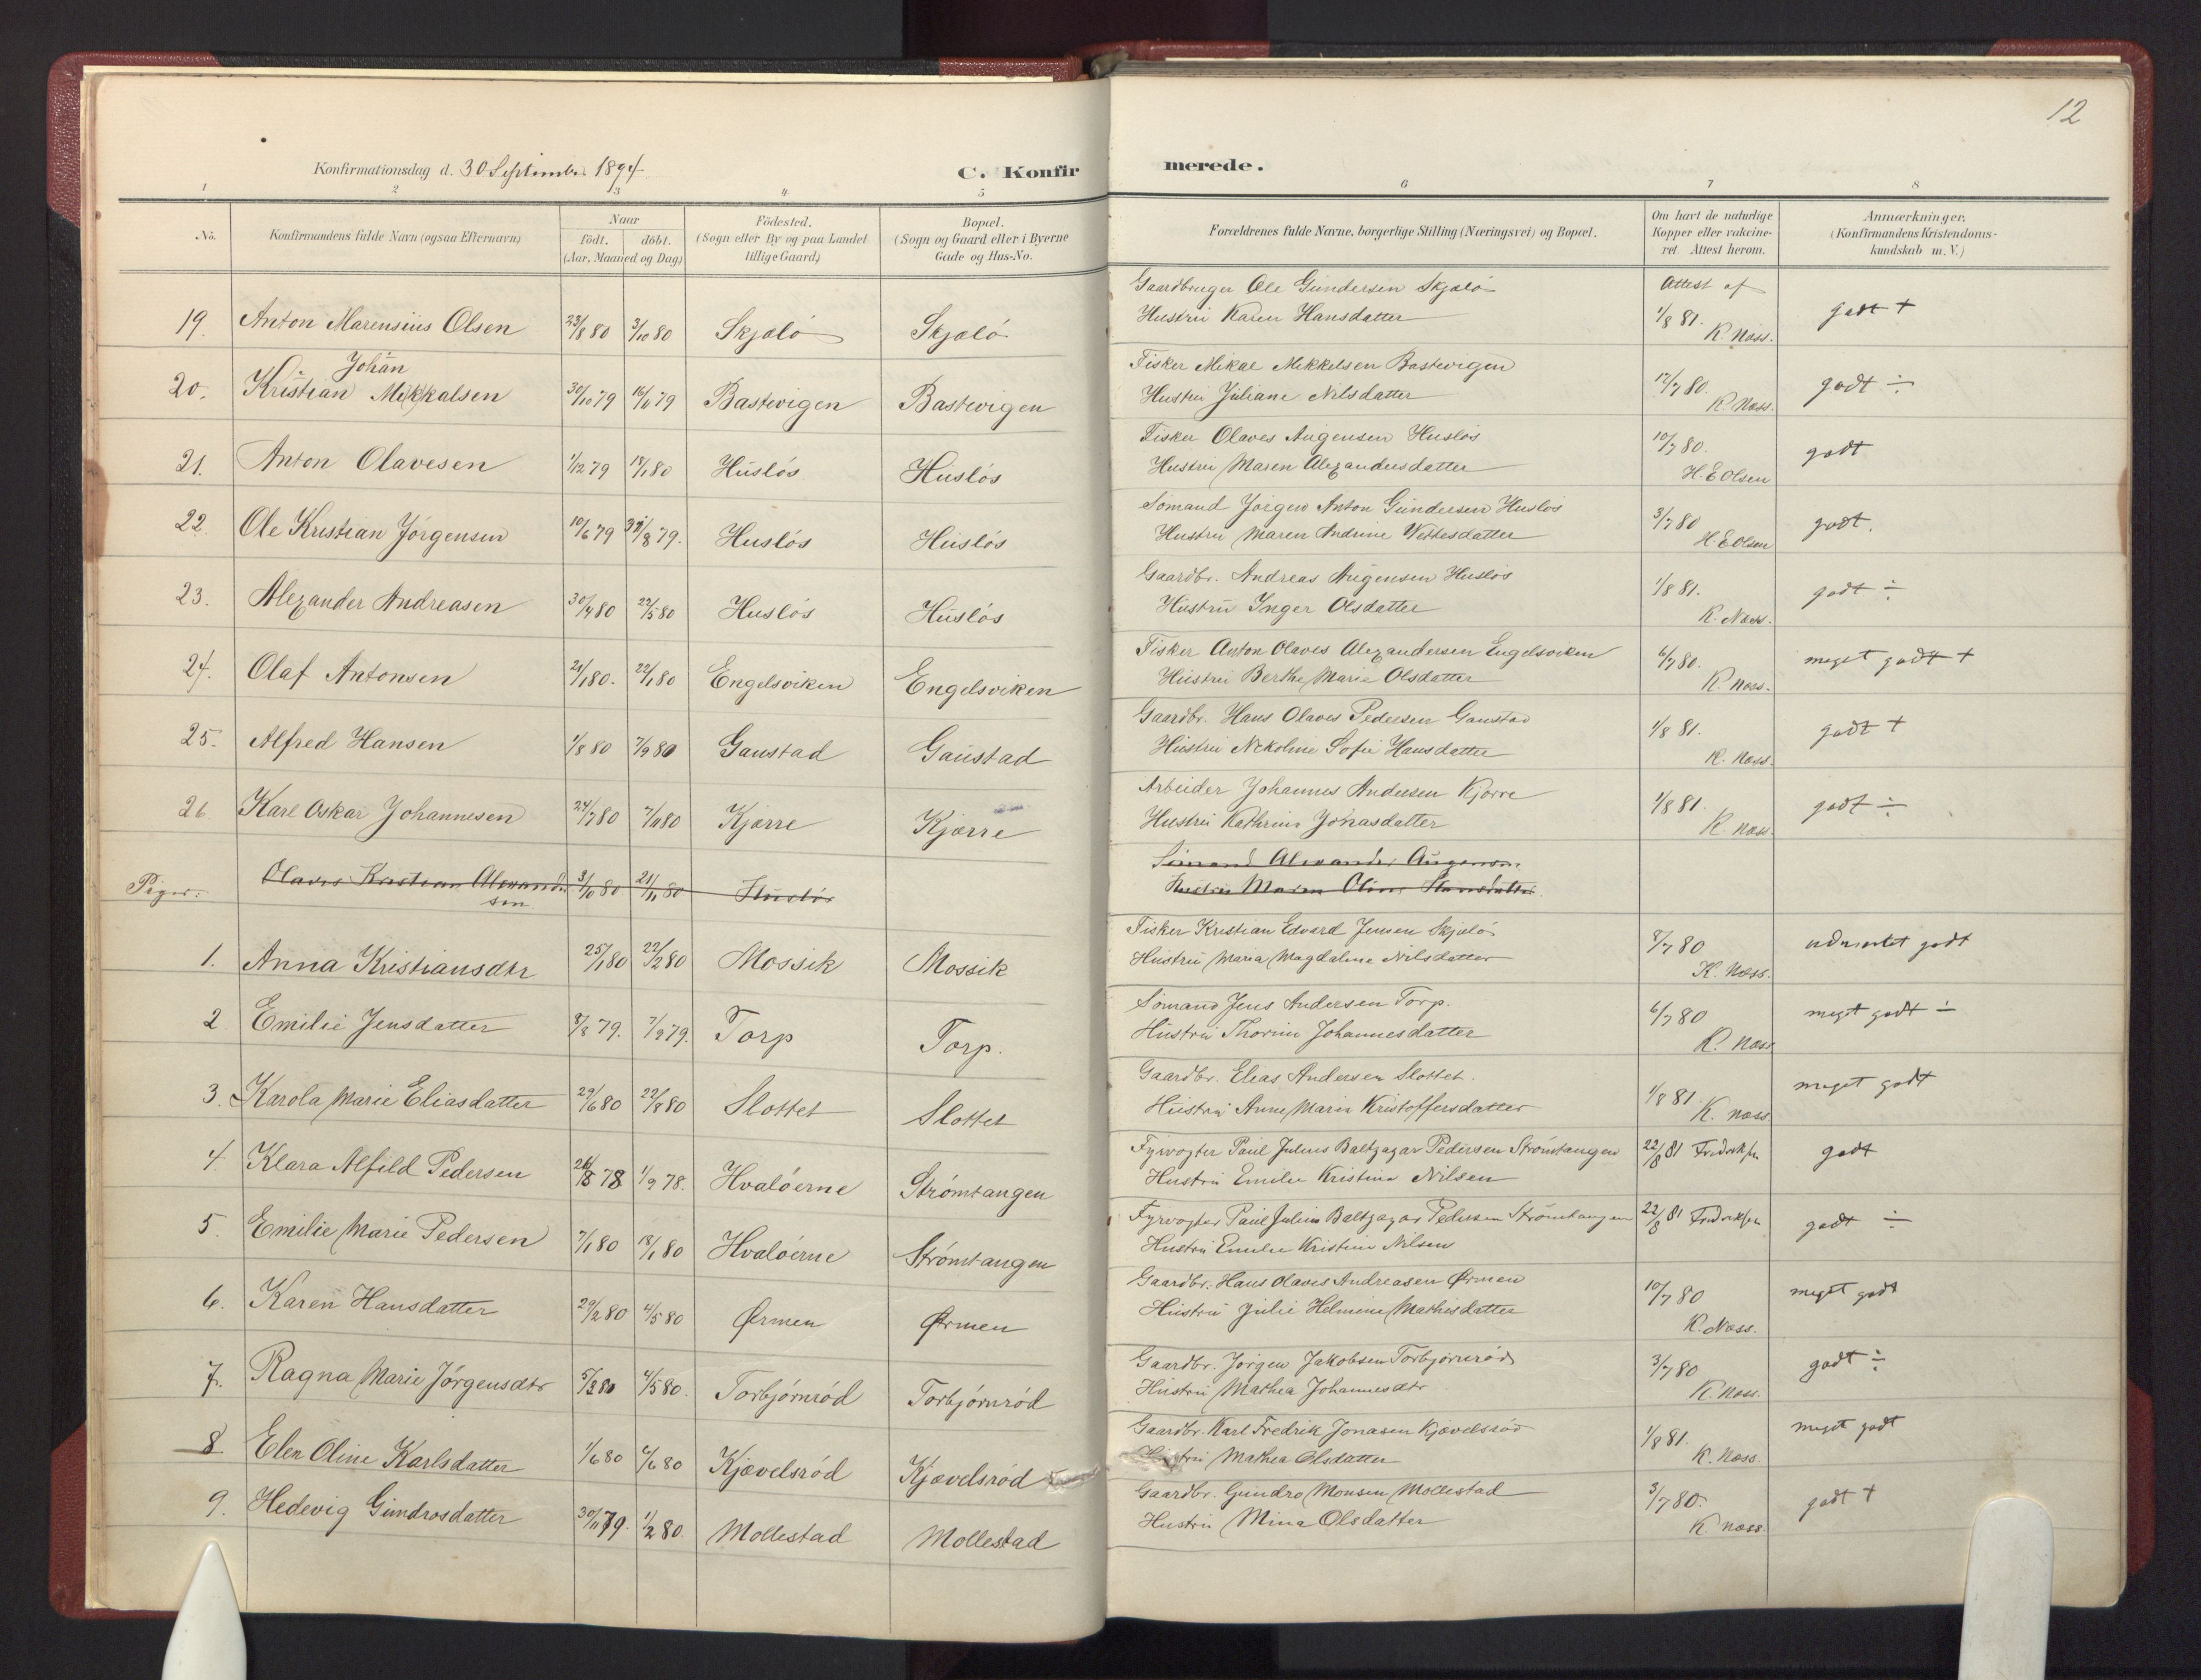 12
Konfirmationsdag d. 30 September 1894.
C. Konfirmerede.
1 2 3 4 5 6 7 8
No.
Konfirmandens fulde Navn (ogsaa Efternavn)
Naar
födt. döbt.
(Aar, Maaned og Dag)
Födested.
(Sogn eller By og paa Landet
tillige Gaard)
Bopæl.
(Sogn og Gaard eller i Byerne
Gade og Hus-No.
Forældrenes fulde Navne, borgerlige Stilling (Næringsvei) og Bopæl.
Om havt de naturlige
Kopper eller vakcine-
ret Attest herom.
Anmærkninger.
(Konfirmandens Kristendoms-
kundskab m. V.)
Gaardbruger Ole Gundersen Skjælö Attest af
19. Anton Marensius Olsen 23/8 80 3/10 80 Skjælö Skjælö Hustru Karen Hansdatter 1/8 81. K. Næss. godt +
Johan
Fisker Mikal Mekkelsen Bastevigen
20. Kristian Mikkalsen 30/10 79 16/11 79 Bastevigen Bastevigen Hustru Juliane Nilsdatter 12/7 80. K. Næss. godt ÷
Fisker Olaves Augensen Huslös
21. Anton Olavesen 1/12 79 18/1 80 Huslös Huslös Hustru Maren Alexandersdatter 10/7 80. H. E Olsen godt
Sömand Jörgen Anton Gundersen Huslös
22. Ole Kristian Jörgensen 10/6 79 31/8 79. Huslös Huslös Hustru Maren Andrine Wettesdatter 3/7 80 H. E Olsen godt.
Gaardbr. Andreas Augensen Huslös
23. Alexander Andreasen 30/4 80 22/5 80 Huslös Huslös Hustru Inger Olsdatter 1/8 81. K. Næss. godt ÷
Fisker Anton Olaves Alexandersen Engelsviken
24. Olaf Antonsen 21/1 80. 22/1 80 Engelsviken Engelsviken Hustru Berthe Marie Olsdatter 6/7 80. K. Næss. meget godt +
Gaardbr. Hans Olaves Pedersen Gaustad
25. Alfred Hansen 1/8 80 7/9 80 Gaustad Gaustad Hustru Nekoline Sofie Hansdatter 1/8 81. K. Næss. godt +
Arbeider Johannes Andersen Kjærre
26 Karl Oskar Johannesen 24/7 80 7/11 80 Kjærre Kjærre Hustru Kathrine Jonasdatter 1/8 81. K. Næss. godt ÷
Sömand Alexander Augensen
Piger: Olaves Kristian Alexandersen 3/10 80 21/11 80 Huslös Hustru Maren Oline Hansdatter
Fisker Kristian Edvard Jensen Skjælö
1. Anna Kristiansdtr 25/1 80 22/2 80 Mossik Mossik Hustru Maria Magdalene Nilsdatter 8/7 80 K. Næss. udmærket godt
Sömand Jens Andersen Torp.
2. Emilie Jensdatter 8/8 79. 7/9 79. Torp Torp. Hustru Thorine Johannesdatter 6/7 80 K. Næss meget godt ÷
Gaardbr. Elias Andersen Slottet.
3. Karola Marie Eliasdatter 29/6 80 22/8 80 Slottet Slottet Hustru Anne Maria Kristoffersdatter 1/8 81. K. Næss meget godt
Fyrvogter Paul Julius Baltzazar Pedersen Strömtangen
4. Klara Alfild Pedersen 78 1/9 78. Hvalöerne Strömtangen Hustru Emilie Kristine Nilsen 22/8 81 godt
Fyrvogter Paul Julius Baltzazar Pedersen Strömtangen
5. Emilie Marie Pedersen 7/1 80 18/1 80 Hvalöerne Strömtangen Hustru Emilie Kristine Nilsen 22/8 81 godt ÷
Gaardbr. Hans Olaves Andreasen Ørmen
6. Karen Hansdatter 29/2 80 4/5 80 Ørmen Ørmen Hustru Julie Helmine Mathisdatter 10/7 80 K. Næss. meget godt
Gaardbr. Jörgen Jakobsen Torbjörnröd
7. Ragna Marie Jörgensdtr 5/3 80 4/5 80. Torbjörnröd Torbjörnröd Hustru Mathea Johannesdtr 3/7 80 K. Næss. godt ÷
Gaardbr. Karl Fredrik Jonasen Kjævelsröd
8. Elen Oline Karlsdatter 1/6 80 6/6 80 Kjævelsröd Kjævelsröd Hustru Mathea Olsdatter 1/8 81. K. Næss. meget godt
Gaardbr. Gundro Monsen Mollestad
9. Hedevig Gundrosdatter 30/11 79. 1/2 80. Mollestad Mollestad Hustru Mina Olsdatter 3/7 80. K Næss. godt +